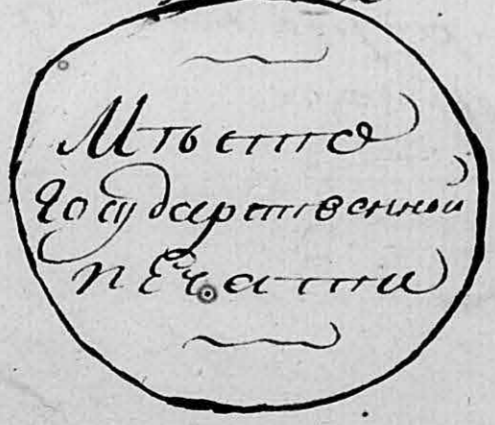 Мѣсто
Государственной
печати